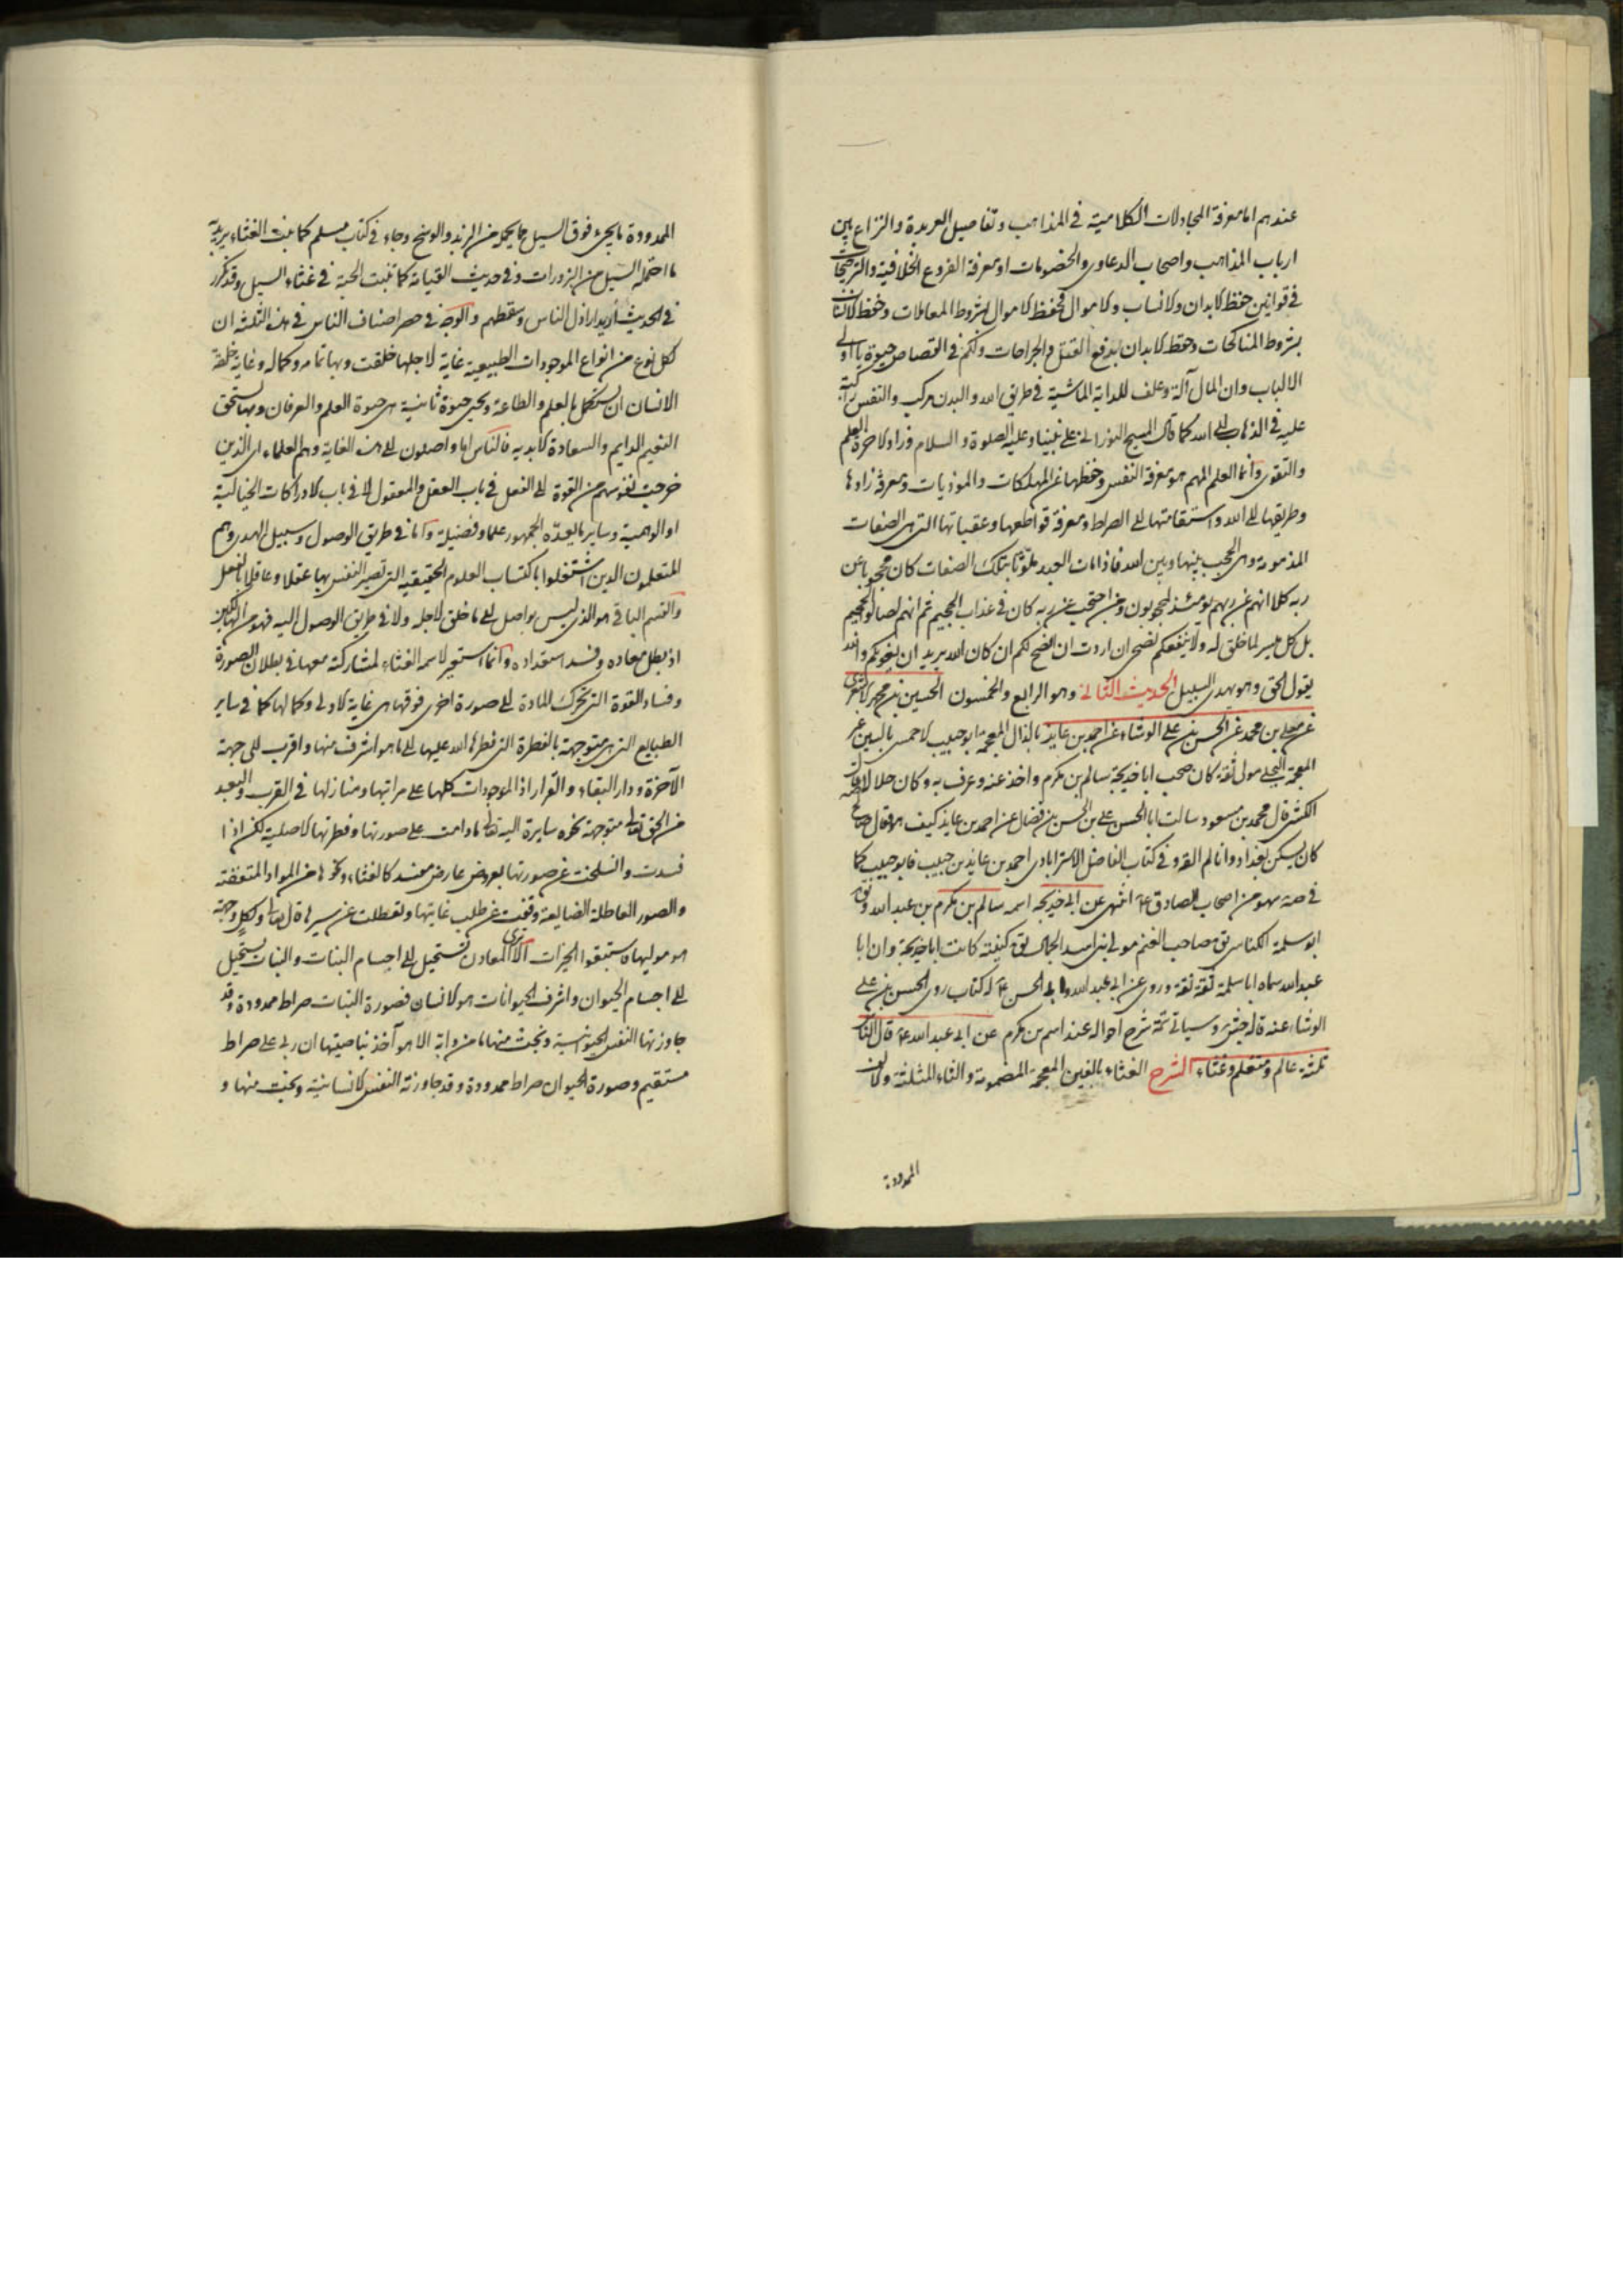 عندهم اما معرفة المجادلات الكلامية في المذاهب وتفاصيل العربدة والنزاع بين
ارباب المذاهب واصحاب الدعاوى والخصومات او معرفة الفروع الخلافية والترجيحات
في قوانين حفظ الابدان والانساب والاموال فحفظ الاموال بشروط المعاملات وحفظ الانساب
بشروط المناكحات وحفظ الابدان بدفع القتل والجراحات ولكم في القصاص حيوة يا اولى
الالباب وان المال آلة وعلف للدابة الماشية في طريق الله والبدن مركب والنفس راكبة
عليه في الذهاب الى الله كما قال المسيح النورانى على نبينا وعليه الصلوة والسلام وزاد الاخرة العلم
والتقوى وانما العلم المهم هو معرفة النفس وحفظها عن المهلكات والموذيات ومعرفة زادها
وطريقها الى الله واستقامتها الى الصراط ومعرفة قواطعها وعقباتها التى هى الصفات
المذمومة وهى الحجب بينها وبين الله فاذا مات العبد ملوثا بتلك الصفات كان محجوبا عن
ربه كلا انهم عن ربهم يومئذ لمحجوبون ومن احتجب عن ربه كان في عذاب الجحيم ثم انهم لصالوا الجحيم
بل كل ميسر لما خلق له ولا ينفعكم نصحى ان اردت ان انصح لكم ان كان الله يريد ان يغويكم والله
يقول الحق وهو يهدى السبيل الحديث الثانى وهو الرابع والخمسون الحسين بن محمد الاشعرى
عن معلى بن محمد عن الحسن بن على الوشاء عن احمد بن عايذ بالذال المعجمة ابو حبيب الاحمسى بالسين غير
المعجمة البجلى مولى ثقة كان صحب ابا خديجة سالم بن مكرم واخذ عنه وعرف به وكان حلالا قال
الكشى قال محمد بن مسعود سالت ابا الحسن على بن الحسن بن فضال عن احمد بن عايذ كيف هو قال صالح
كان يسكن بغداد وانا لم القه وفي كتاب الفاضل الاسترابادى احمد بن عايذ بن حبيب فابو حبيب كما
في صه سهو من اصحاب الصادق ع انتهى عن ابى خديجة اسمه سالم بن مكرم بن عبد الله
ابو سلمة الكناسى يق صاحب الغنم مولى بنى اسد الجمال يق كنيته كانت ابا خديجة وان ابا
عبد الله سماه ابا سلمة ثقة ثقة وروى عن ابى عبد الله وابى الحسن ع له كتاب روى الحسن بن على
الوشاء عنه قاله جش وسياتى تتمة شرح احواله عند اسم بن مكرم عن ابى عبد الله ع قال الناس
ثلثة عالم ومتعلم وغثاء الشرح الغثاء بالغين المعجمة المضمومة والثاء المثلثة والالف
الممدودة
الممدودة ما يجىء فوق السيل مما يحمل من الزبد والوسخ وجاء في كتاب مسلم كما تنبت الغثاء يريد به
ما احتمله السيل من البزورات وفي حديث القيامة كما تنبت الحبة في غثاء السيل وقد تكرر
في الحديث اريد اراذل الناس وسقطهم والوجه في حصر اصناف الناس في هذه الثلثة ان
لكل نوع من انواع الموجودات الطبيعية غاية لاجلها خلقت وبها تمامه وكماله وغاية خلقة
الانسان ان يستكمل بالعلم والطاعة ويحيى حيوة ثانية هى حيوة العلم والعرفان وبها يستحق
النعيم الدايم والسعادة الابدية فالناس اما واصلون الى هذه الغاية وهم العلماء اى الذين
خرجت نفوسهم من القوة الى الفعل في باب العقل والمعقول لا في باب الادراكات الخيالية
او الوهمية وساير ما يعده الجمهور علما وفضيلة واما في طريق الوصول وسبيل الهدى وهم
المتعلمون الذين اشتغلوا باكتساب العلوم الحقيقية التى تصير النفس بها عقلا وعاقلا بالفعل
والقسم الباقى هو الذى ليس بواصل الى ما خلق لاجله ولا في طريق الوصول اليه فهو من الهالكين
اذ بطل معاده وفسد استعداده وانما استعير لاسمه الغثاء لمشاركته معها في بطلان الصورة
وفساد القوة التى تحرك المادة الى صورة اخرى فوقها هى غاية الاولى وكمالها كما في ساير
الطبايع التى هى متوجهة بالفطرة التى فطرها الله عليها الى ما هو اشرف منها واقرب الى جهة
الآخرة ودار البقاء والقرار اذ الموجودات كلها على مراتبها ومنازلها في القرب والبعد
من الحق تعالى متوجهة نحوه سايرة اليه تعالى ما دامت على صورتها وفطرتها الاصلية لكن اذا
فسدت وانسلخت عن صورتها بعروض عارض مفسد كالغثاء ونحوها من المواد المتعفنة
والصور العاطلة الضايعة وقفت عن طلب غاياتها وتعطلت عن سيرها قال تعالى ولكل وجهة
هو موليها فاستبقوا الخيرات الا ترى المعادن تستحيل الى اجسام النبات والنبات يستحيل
الى اجسام الحيوان واشرف الحيوانات هو الانسان فصورة النبات صراط ممدودة وقد
جاوزتها النفس الحيوانية ونجت منها ما من دابة الا هو آخذ بناصيتها ان ربى على صراط
مستقيم وصورة الحيوان صراط ممدودة وقد جاوزته النفس الانسانية ونجت منها و